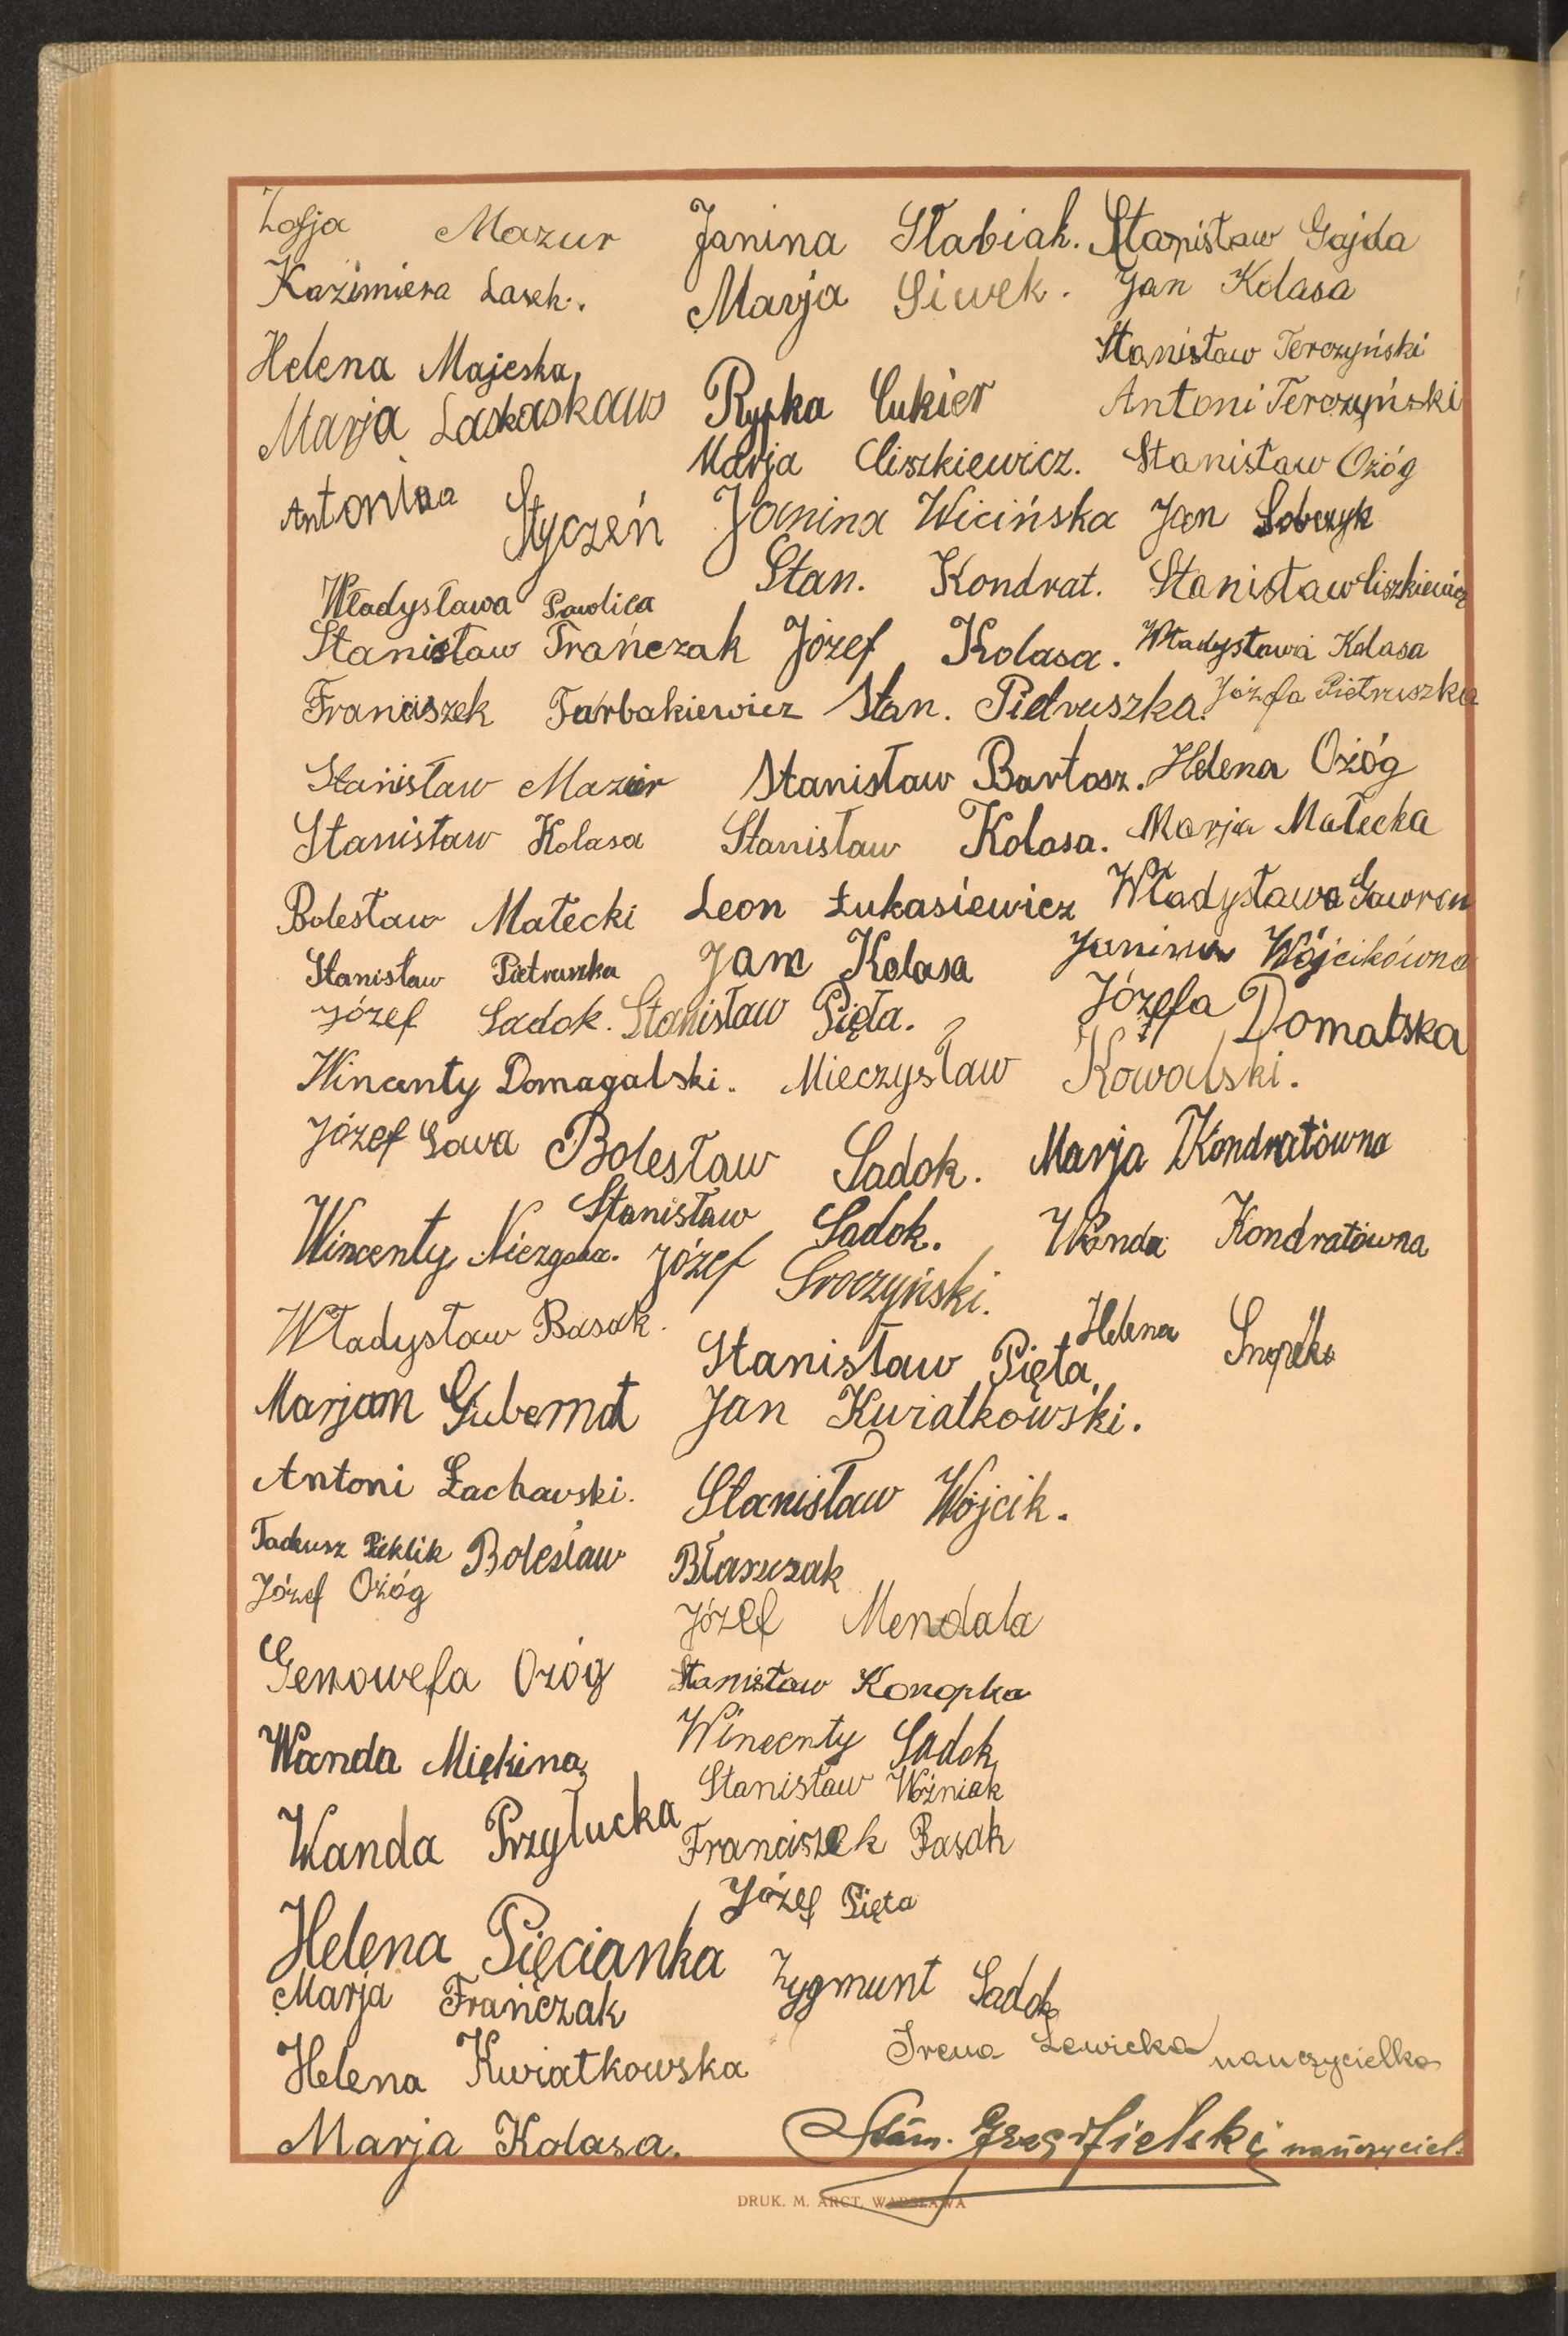 Zofja Mazur Janina Słabiak. Stanisław Gajda
Kazimiera Lasek. Marja Siwek. Jan Kolasa
Helena Majeska Stanisław Terczyński
Marja Laskaskaus Ryfka Cukier Antoni Terczyński
Marja Cliszkiewicz. Stanisław Ożóg
Antonina Styczeń Janina Wicińska Jan Sobczyk
Władysława Pawlica Stan. Kondrat. Stanisław liszkiewicz
Stanisław Frańczak Józef Kolasa. Władysława Kolasa
Franciszek Tarbakiewicz Stan. Pietruszka. Józefa Pietruszka
Stanisław Mazur Stanisław Bartosz. Helena Ożóg
Stanisław Kolasa Stanisław Kolasa. Marja Małecka
Bolesław Małecki Leon Łukasiewicz Władysława Gawron
Stanisław Pietruszka Jan Kolasa Janina Wójcikówna
Józef Sadok. Stanisław Pięta. Józefa Domalska
Wincenty Domagalski. Mieczysław Kowalski.
Józef Sowa Bolesław Sadok. Marja Kondratówna
Stanisław Sadok. Wanda Kondratówna
Wincenty Niezgoda. Józef Sroczyński.
Władysław Basak. Helena
Stanisław Pięta.
Marjam Gubernat Jan Kwiatkowski.
Antoni Żachawski. Stanisław Wójcik.
Tadeusz Piklik Bolesław Błaszczak
Józef Ożóg Józef Mendala
Genowefa Ożóg Stanisław Konopka
Wanda Miękina Wincenty Sadok
Stanisław Woźniak
Wanda Przyłucka Franciszek Basak
Józef Pięta
Helena Pięcianka Zygmunt Sadok
Marja Frańczak
Helena Kwiatkowska Irena Lewicka nauczycielka
Marja Kolasa. Stan. nauczyciel.
DRUK. M. ARCT, WARSZAWA